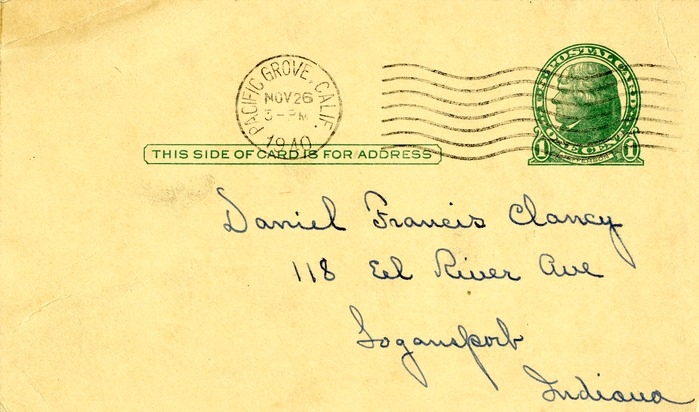 PACIFIC GROVE, CALIF.
NOV 26
3-PM
1940
U.S. POSTAL CARD
ONE CENT
1 JEFFERSON 1
THIS SIDE OF CARD IS FOR ADDRESS
Daniel Francis Clancy
118 Eel River Ave
Logansport
Indiana